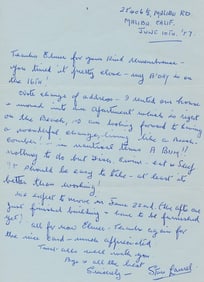 25406½, MALIBU RD
MALIBU CALIF.
JUNE 10TH. '57.
Thanks Elmer for your kind Remembrance –
you timed it pretty close – my B'day is on
the 16th!
Note change of address – I rented our house
& moved into an apartment which is right
on the Beach, & am looking forward to having
a wonderful change, living like a Beach
Comber! – in nautical terms A Bum!!
nothing to do but Fish, Swim – eat & Sleep
It should be easy to take – at least it
better than working!
We expect to move in June 22nd. (the apts are
just finished building – & have to be furnished
yet).
All for now Elmer. Thanks again for
the nice card – much appreciated
Trust alls well with you
Bye & all the best
Sincerely –
Stan Laurel